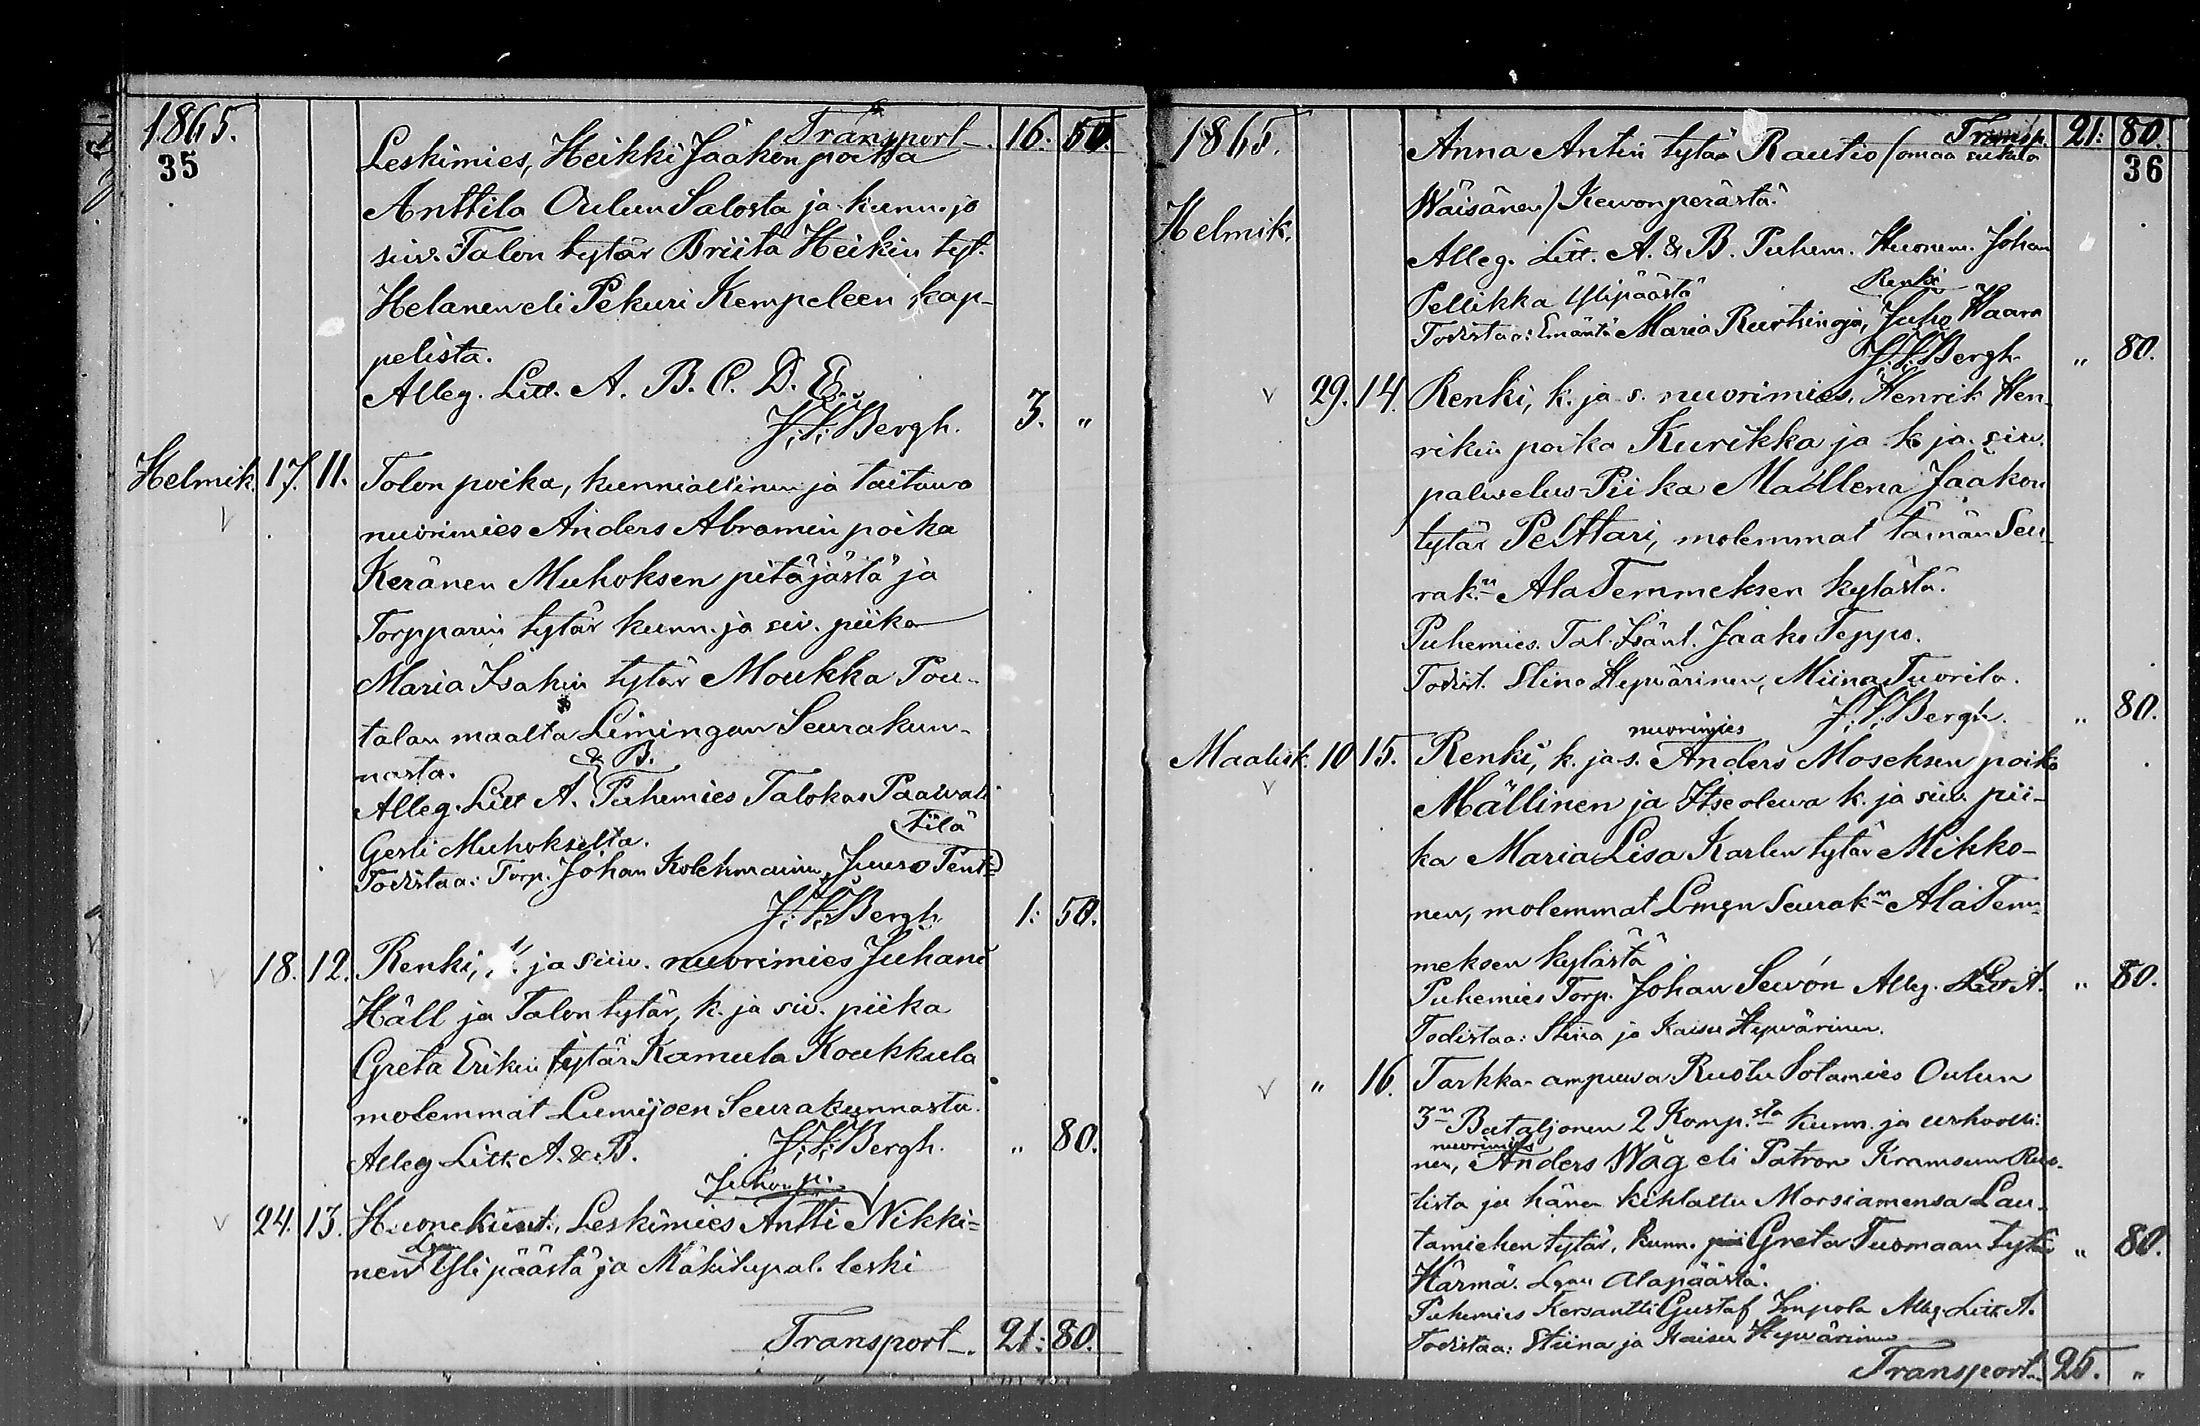 1865.
35
Transport 16. 50.
Leskimies, Heikki Jaakon poika
Anttila Oulun Salosta ja kunn. ja
siv. Talon tytär Briita Heikin tyt.
Helanen eli Pekuri Kempeleen kap-
pelista.
Alleg. Litt. A. B. C. D. E.
Bergh. 3. "
Helmik. 17. 11. Talon poika, kunniallinen ja taitawa
nuorimies Anders Abramin poika
Keränen Muhoksen pitäjästä ja
Torpparin tytär kunn. ja siv. piika
Maria Isakin tytär Moukka Pou-
talan maalta Limingan Seurakun-
nasta.
& B.
Alleg. Litt A. Puhemies Talokas Paawali
Gerli Muhokselta. Tilä
Todistaa: Torp. Johan Kolehmainen, Juuso Pent
Bergh 1: 50.
18. 12. Renki, k. ja siiv. nuorimies Juhani
Häll ja Talon tytär, k. ja siv. piika
Greta Erikin tytär Kamula Koukkula
molemmat Lumijoen Seurakunnasta.
Alleg Litt. A. & B. Bergh. " 80.
Juhon p.
24. 13. Huonekunt., Leskimies Antti Nikki=
nen Lgan Ylipäästä ja Mäkitupal. leski
Transport 21: 80.
1865. Transp. 21: 80.
36
Anna Antin tytär Rautio (omaa sukua
Wäisänen) Kewonperästä.
Helmik.
Alleg. Litt. A. & B. Puhem. Huonem. Johan
Pellikka Ylipäästä Renki
Todistaa: Emäntä Maria Ruutsinoja, Juho Haara
Bergh " 80.
29. 14. Renki, k. ja s. nuorimies, Henrik Hen-
rikin poika Kurikka ja k. ja siw.
palwelus Piika Madlena Jaakon
tytär Pelttari, molemmat tämän Seu-
rak:n Ala Temmeksen kylästä.
Puhemies. Tal. Isänt. Jaako Teppo.
Todist. Stina Hywärinen, Miina Tuorila.
Bergh. " 80.
nuorimies
Maalisk. 10 15. Renki, k. ja s. Anders Moseksen poika
Mällinen ja Itseolewa k. ja siw. pii-
ka Maria Lisa Karlen tytär Mikko-
nen, molemmat Lmgn Seurak:n Ala Tem-
meksen kylästä
Puhemies Torp. Johan Sewón Alleg. Litt A. " 80.
Todistaa: Stina ja Kaisu Hywärinen.
" 16. Tarkka-ampuwa Ruotu Sotamies Oulun
3:n Bataljonen 2 Komp.sta kunn. ja urhoolli-
nuorimies
nen, Anders Wäg eli Patron Kramsun Ruo-
tista ja hänen kihlattu Morsiamensa Lau-
tamiehen tytär, kunn. Greta Tuomaan tytär " 80.
Härmä. Lgan Alapäästä.
Puhemies Kersantti Gustaf Impola Alleg. Litt A.
Todistaa: Stiina ja Kaisu Hywärinen
Transport 25. "